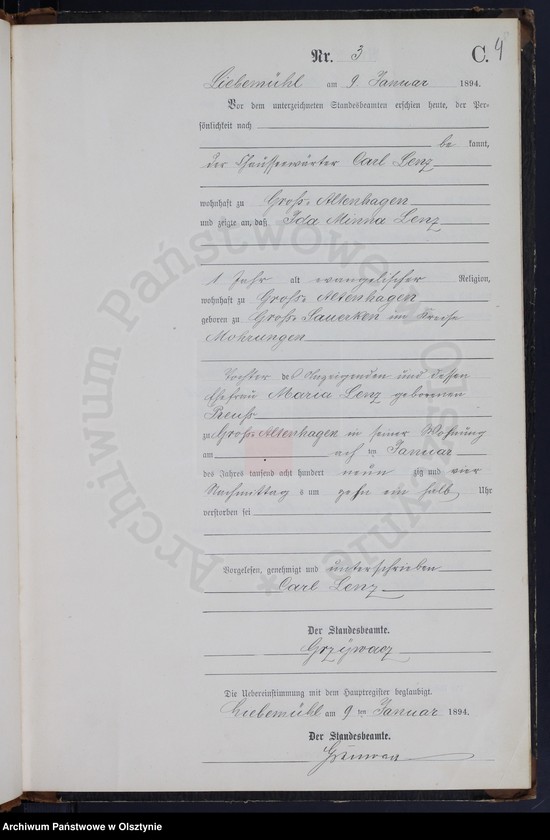 4
Nr. 3 C.
Liebemühl am 9. Januar 1894.
Vor dem unterzeichneten Standesbeamten erschien heute, der Per-
sönlichkeit nach
be kannt,
der Chausseewärter Carl Lenz
wohnhaft zu Groß-Altenhagen
und zeigte an, daß Ida Minna Lenz
1 Jahr alt evangelischer Religion,
wohnhaft zu Groß-Altenhagen
geboren zu Groß-Sauerken im Kreise
Mohrungen
Tochter des Anzeigenden und dessen
Ehefrau Maria Lenz geborenen
Preuß
zu Groß-Altenhagen in seiner Wohnung
am ach ten Januar
des Jahres tausend acht hundert neun zig und vier
Nachmittag s um zehn ein halb Uhr
verstorben sei
Vorgelesen, genehmigt und unterschrieben
Carl Lenz
Der Standesbeamte.
Grzywacz
Die Uebereinstimmung mit dem Hauptregister beglaubigt.
Liebemühl am 9 ten Januar 1894.
Der Standesbeamte.
Archiwum Państwowe w Olsztynie
Archiwum Państwowe w Olsztynie